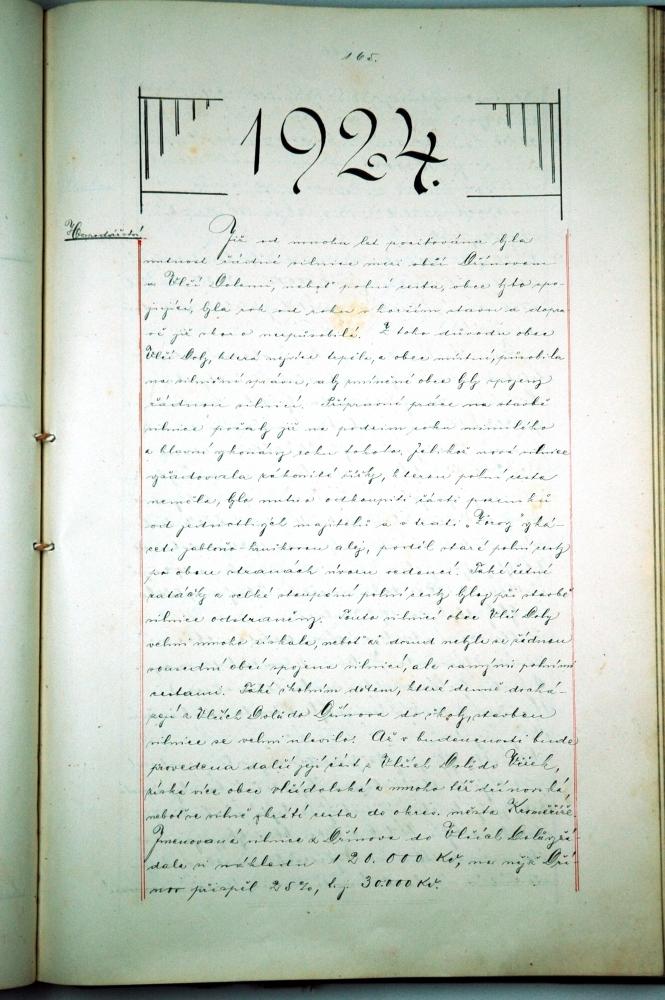 165.
1924.
Hospodářství.
Již od mnoha let pociťována byla
nutnost řádné silnice mezi obcí Dřínovem
a Vlčí Dolami, neboť polní cesta, obce tyto spo-
jující, byla rok od roku v horším stavu a dopra-
vě již skoro nezpůsobilá. Z toho důvodu obec
Vlčí Doly, která nejvíce trpěla, a obec místní, působila
na silniční správu, aby zmíněné obce byly spojeny
řádnou silnicí. Přípravné práce na stavbě
silnice počaly již na podzim roku minulého
a hlavní vykonány roku tohoto. Jelikož nová silnice
vyžadovala zákonité šířky, kterou polní cesta
neměla, bylo nutno odkoupiti části pozemků
od jednotlivých majitelů a v trati „ " vyká-
ceti jabloňo- alej, podél staré polní cesty
po obou stranách úvozu vedoucí. Také četné
zatáčky a velké stoupání polní cesty byly při stavbě
silnice odstraněny. Touto silnicí obec Vlčí Doly
velmi mnoho získala, neboť až dosud nebyla se žádnou
sousední obcí spojena silnicí, ale samými polními
cestami. Také školním dětem, které denně dochá-
zejí z Vlčích Dolů do Dřínova do školy, stavbou
silnice se velmi ulevilo. Až v budoucnosti bude
provedena další její část z Vlčích Dolů do Věžek,
získá více obec vlčídolská a mnoho též dřínovská,
neboť se silně zkrátí cesta do okres. města Kroměříže.
Jmenovaná silnice z Dřínova do Vlčích Dolů vyžá-
dala si nákladu 120.000 Kč, na nějž Dří-
nov přispěl 25%, t.j. 30.000 Kč.